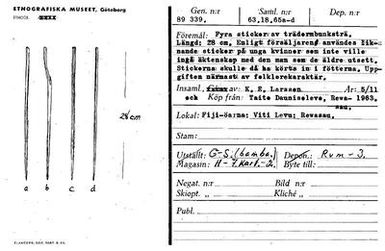 ETNOGRAFISKA MUSEET, Göteborg
28 cm
a b c d
Gen. n:r Saml. n:r Dep. n:r
89 339, 63,18,65a-d
Föremål: Fyra stickor av träddrmbunksträ,
Längd: 28 cm, Enligt försäljaren användes lik-
nande stickor på unga kvinnor som inte ville
ingå äktenskap med den man som de äldre utsett.
Stickorna skulle då ha körts in i fötterna. Upp-
giften närmast av folklorekaraktär.
Insaml. av: K, E, Larsson År: 5/11
och Köp från: Taito Dauniseleva, Reva- 1963,
Lokal: Fiji-öarna: Viti Levu; Revasau,
Stam:
Utställt: G-S. (bamba.) Depon.: Rum - 3.
Magasin: H-7. Byte till:
Negat. n:r Bild n:r
Skiopt. n:r Cliché n:r
Publ.